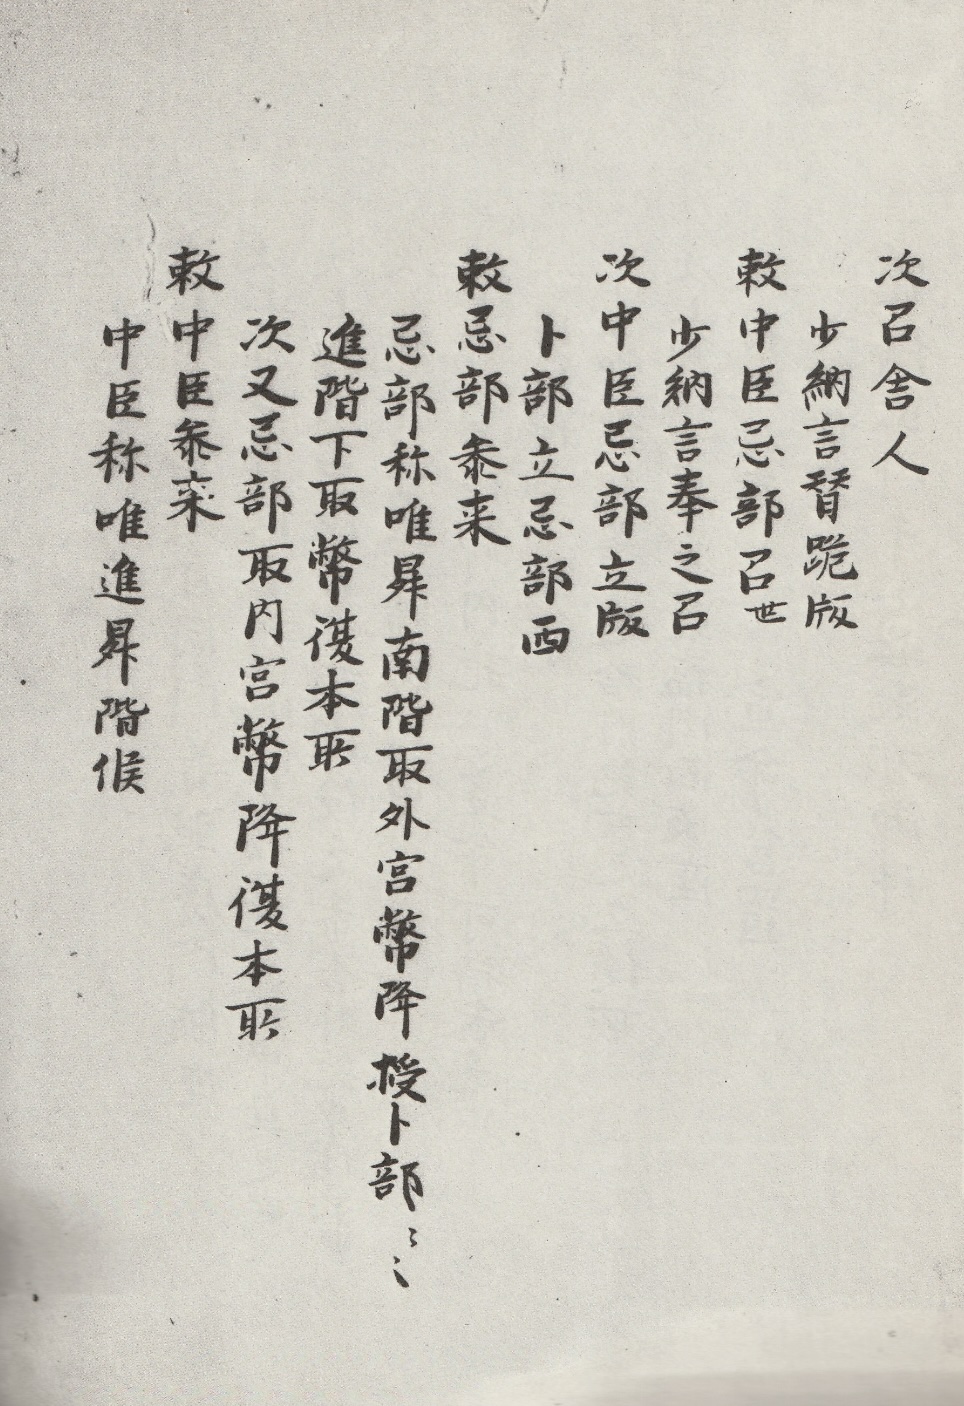 次召舎人
少納言替跪版
敕中臣忌部召世
少納言奉之召
次中臣忌部立版
卜部立忌部西
敕忌部叅来
忌部称唯昇南階取外宮幣降授卜部〻〻
進階下取幣復本所
次又忌部取内宮幣降復本所
敕中臣叅来
中臣称唯進昇階候